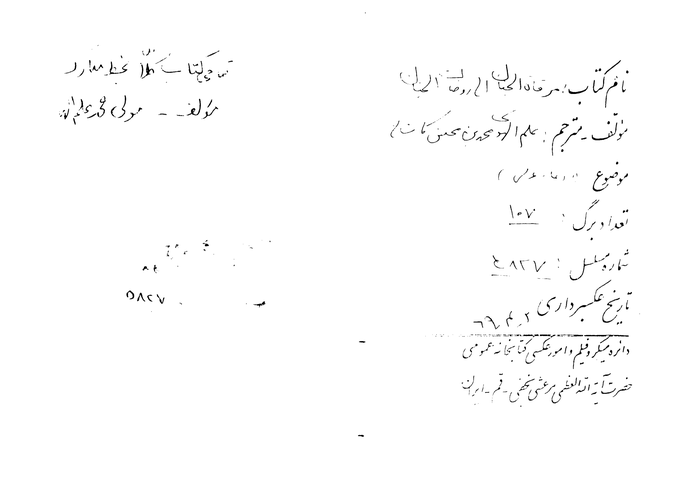 نام کتاب: مرقاة الجنان الی روضات الجنان
مؤلف - مترجم: علم الهدی محمد بن محسن کاشانی
موضوع (دعا)
تعداد برگ: ۱۰۷
شماره مسلسل: ۵۸۲۷
تاریخ عکسبرداری ۶۹٫۴٫۲
دائره میکروفیلم و امور عکسی کتابخانه عمومی
حضرت آیة الله العظمی مرعشی نجفی - قم - ایران
تمامی کتاب کلا بخط مبارک
مؤلف - مولی محمد علم الهدی
۵۸۲۷